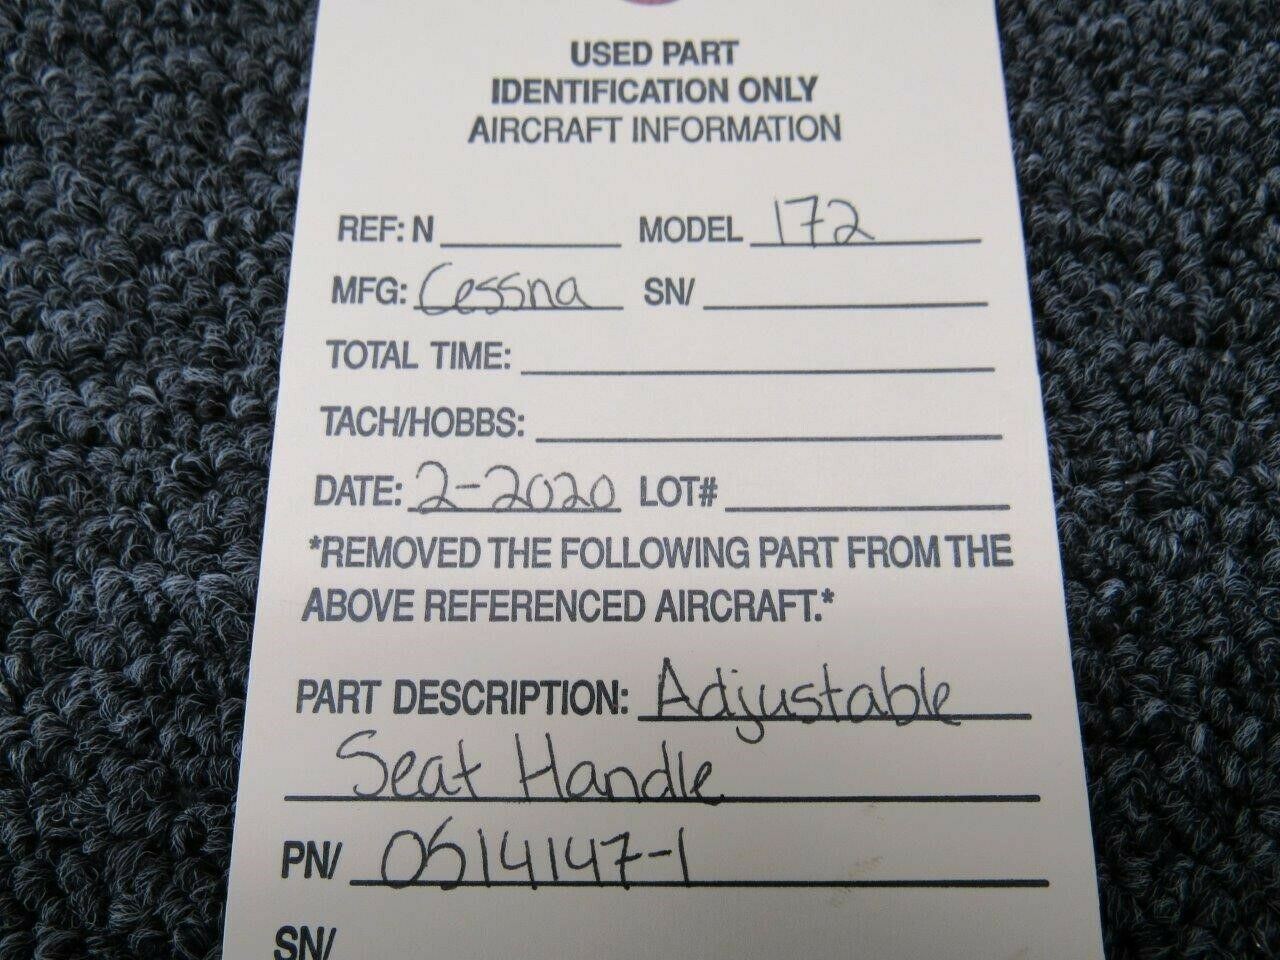 USED PART
IDENTIFICATION ONLY
AIRCRAFT INFORMATION
REF: N MODEL 172
MFG: Cessna SN/
TOTAL TIME:
TACH/HOBBS:
DATE: 2-2020 LOT#
*REMOVED THE FOLLOWING PART FROM THE
ABOVE REFERENCED AIRCRAFT.*
PART DESCRIPTION: Adjustable
Seat Handle
PN/ 0514147-1
SN/